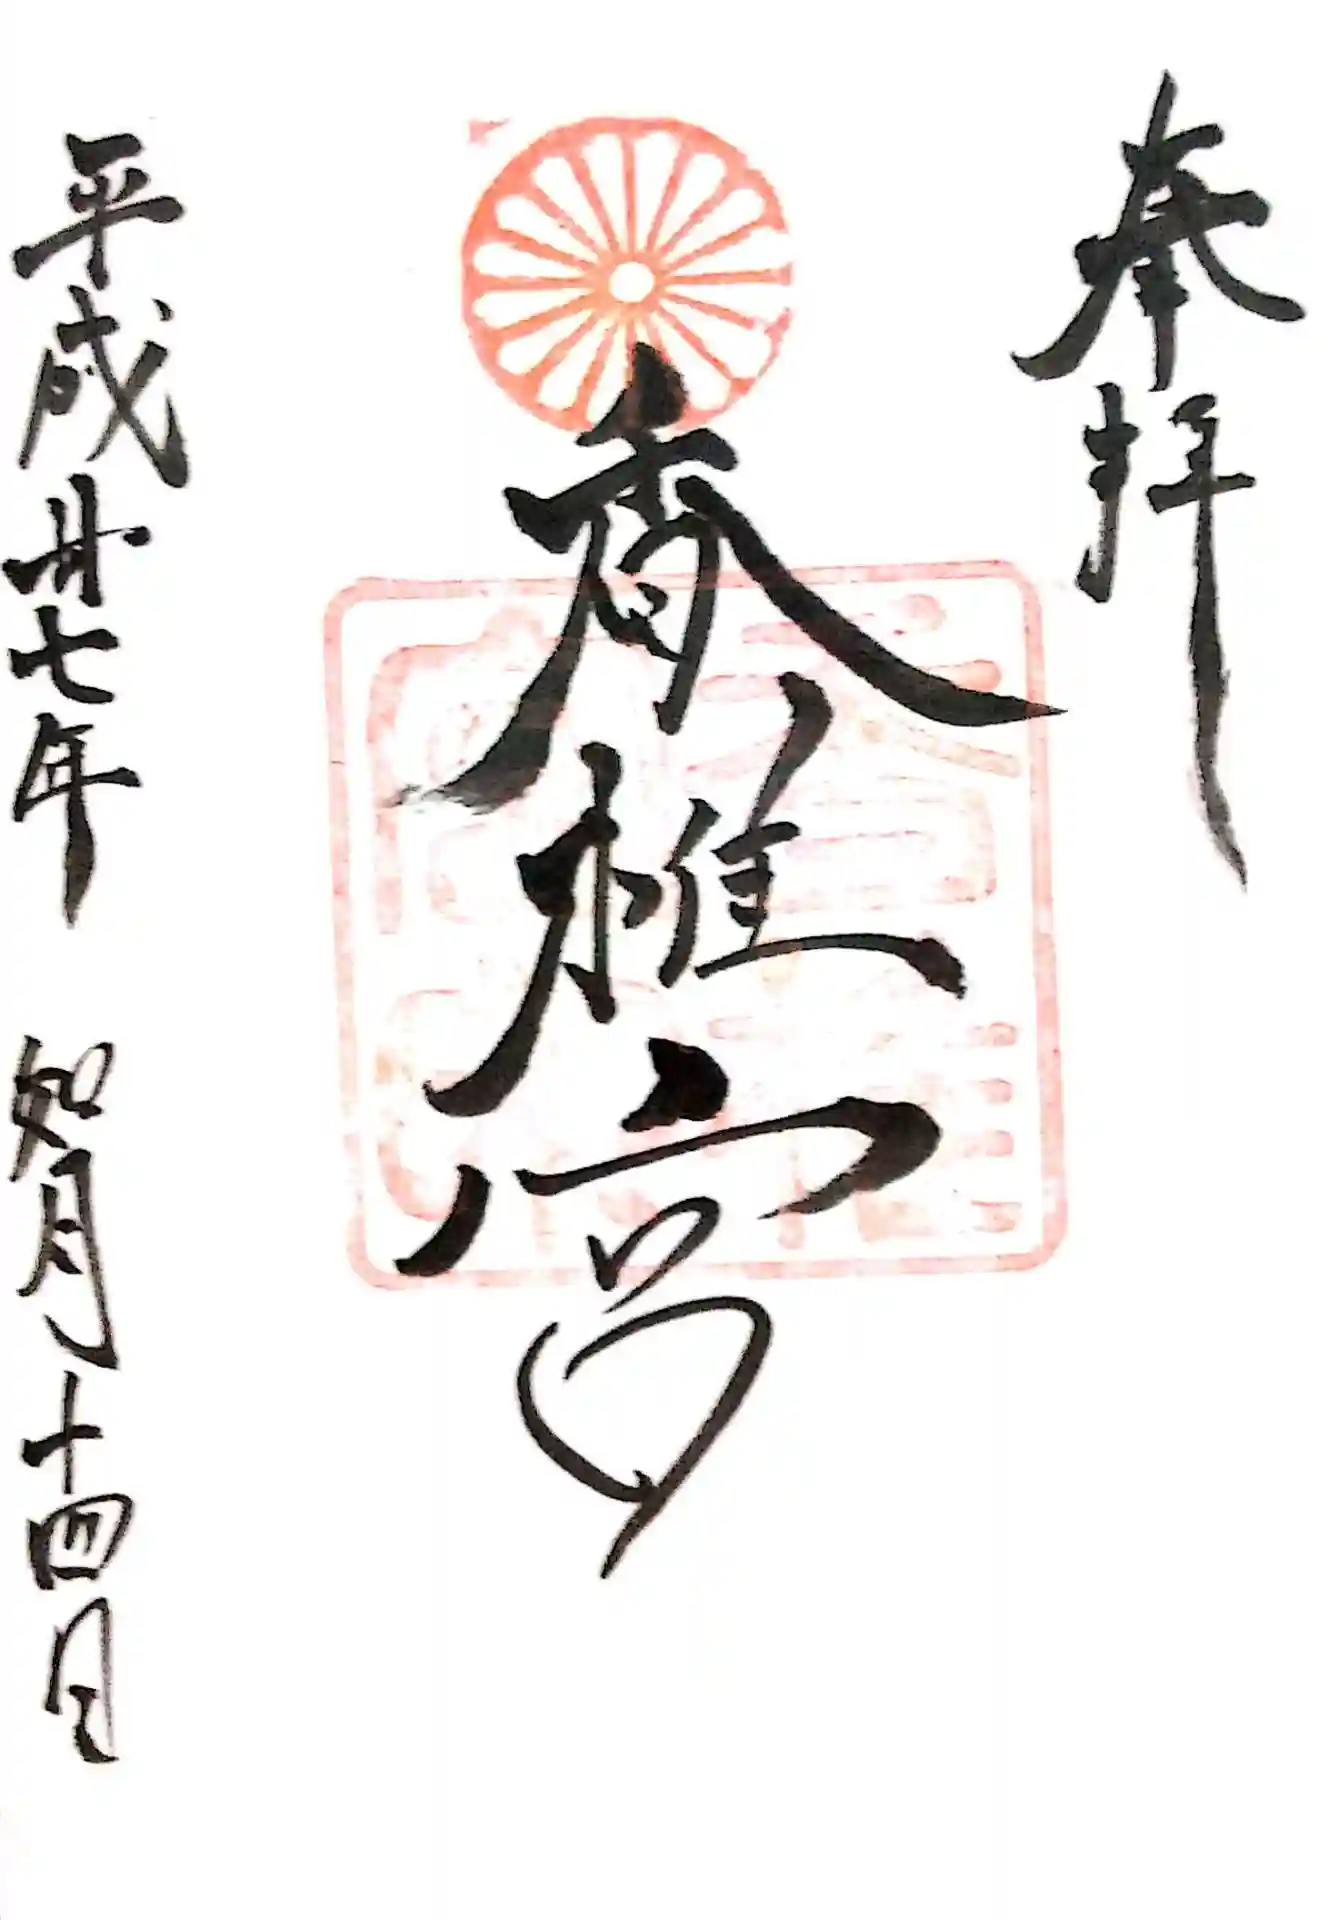 奉拝
香椎宮
平成廿七年 如月十四日